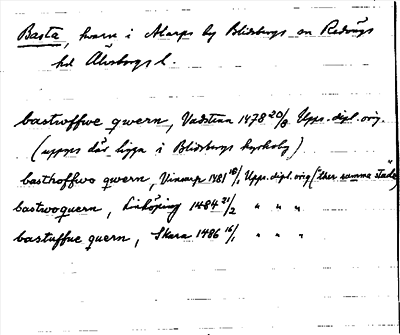 Basta, kvarn i Alarps by Blidsbergs sn Redvägs
hd Älvsborgs l.
bastwoffwe qwern, Vadstena 1478 20/8 Upps. dipl. orig.
(uppges där ligga i Blidsbergs kyrkoby)
basthoffwo qwern, Vinarp 1481 18/1 Upps. dipl. orig (ther samma städe)
bastwoquern, Linköping 1484 21/2 " " "
bastuffue quern, Skara 1486 16/1 " " "